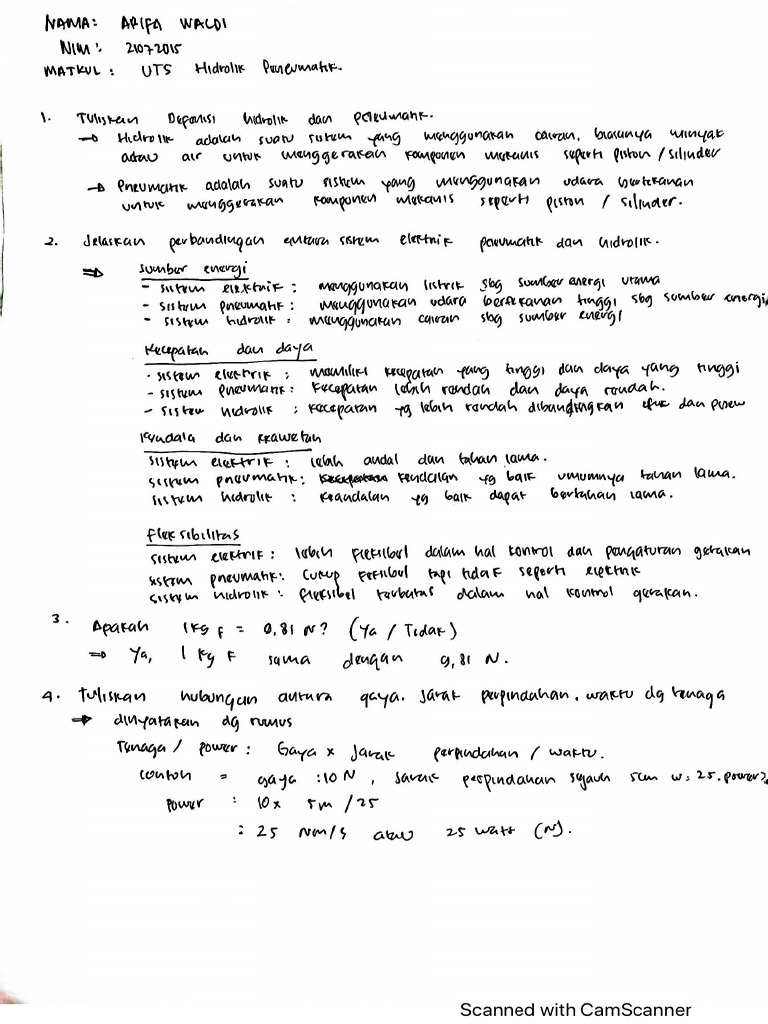 NAMA : ARIFA WALDI
NIM : 21072015
MATKUL : UTS Hidrolik Pneumatik.
1. Tuliskan Depenisi hidrolik dan pneumatik.
→ Hidrolik adalah suatu sistem yang menggunakan cairan, biasanya minyak
atau air untuk menggerakan komponen mekanis seperti piston / silinder
→ Pneumatik adalah suatu sistem yang menggunakan udara bertekanan
untuk menggerakan komponen mekanis seperti piston / silinder.
2. Jelaskan perbandingan antara sistem elektrik pneumatik dan hidrolik.
⇒ Sumber energi
- sistem elektrik : menggunakan listrik sbg sumber energi utama
- sistem pneumatik : menggunakan udara bertekanan tinggi sbg sumber energi
- sistem hidrolik : menggunakan cairan sbg sumber energi
Kecepatan dan daya
- sistem elektrik : memiliki kecepatan yang tinggi dan daya yang tinggi
- sistem pneumatik : kecepatan lebih rendah dan daya rendah.
- sistem hidrolik : kecepatan yg lebih rendah dibandingkan dan
dan
sistem elektrik : lebih andal dan tahan lama.
sistem pneumatik : yg baik umumnya tahan lama.
sistem hidrolik : keandalan yg baik dapat bertahan lama.
Fleksibilitas
sistem elektrik : lebih fleksibel dalam hal kontrol dan pengaturan gerakan
sistem pneumatik : cukup fleksibel tapi tidak seperti elektrik
sistem hidrolik : fleksibel terbatas dalam hal kontrol gerakan.
3. Apakah 1 kg F = 0,81 N? (Ya / Tidak)
⇒ Ya, 1 kg F sama dengan 9,81 N.
4. Tuliskan hubungan antara gaya, jarak perpindahan, waktu dg tenaga
⇒ dinyatakan dg rumus
Tenaga / power : Gaya x Jarak perpindahan / waktu.
contoh = gaya : 10 N, jarak perpindahan sejauh 5cm w : 25. power?
power : 10 x 5m / 25
: 25 Nm/s atau 25 watt (N).
Scanned with CamScanner